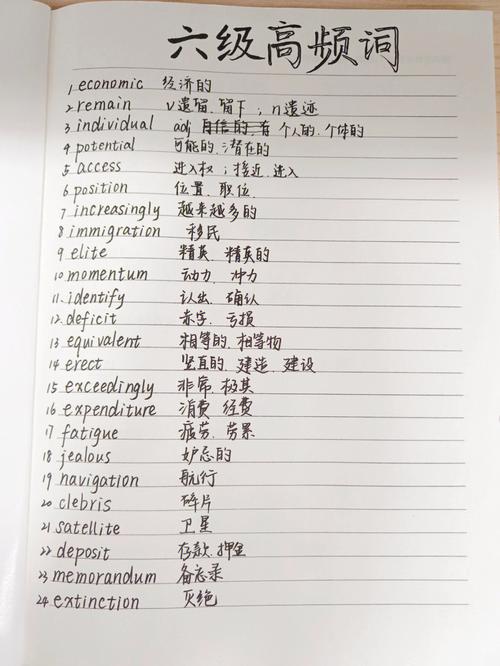 六级高频词
1.economic 经济的
2.remain v遗留.留下；n遗迹
3 individual adj 自信的.有 个人的.个体的
4 potential 可能的.潜在的
5 access 进入权；接近.进入
6 position 位置.职位.
7 increasingly 越来越多的
8 immigration 移民
9 elite 精英.精英的
10 momentum 动力.冲力
11.identify 认出.确认
12.deficit 赤字.亏损
13 equivalent 相等的.相等物
14 erect 竖直的.建造.建设
15 exceedingly 非常.极其
16 expenditure 消费 经费
17 fatigue 疲劳.劳累
18 jealous 妒忌的
19 navigation 航行
20 clebris 碎片
21 satellite 卫星
22 deposit 存款.押金
23 memorandum 备忘录
24 extinction 灭绝